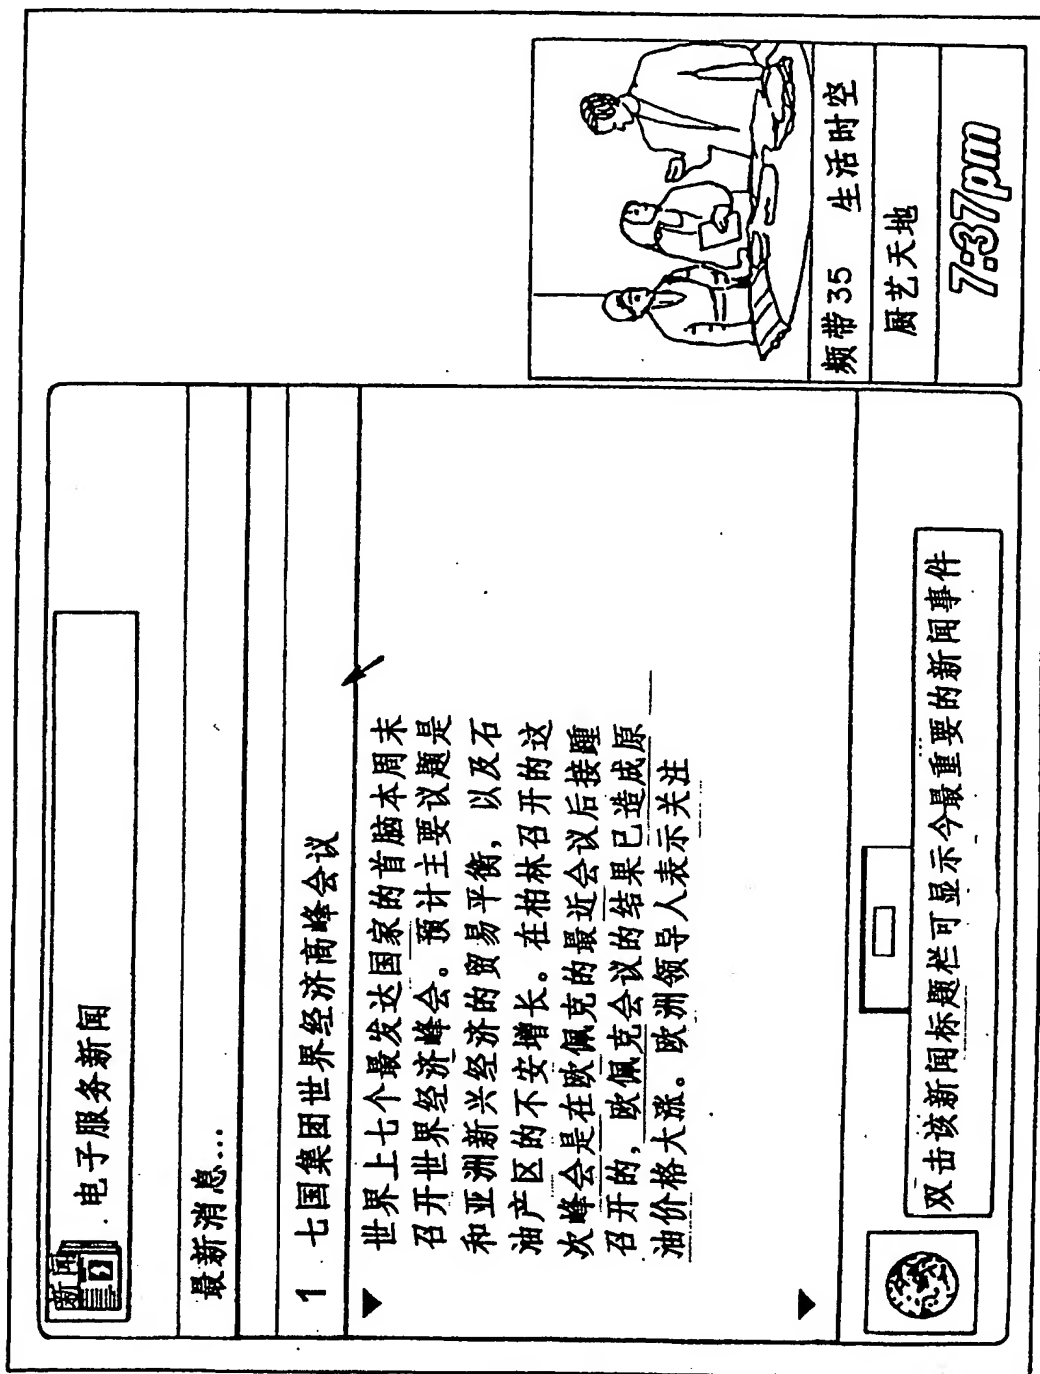 新闻
电子服务新闻
最新消息...
1 七国集团世界经济高峰会议
世界上七个最发达国家的首脑本周末
召开世界经济峰会。预计主要议题是
和亚洲新兴经济的贸易平衡，以及石
油产区的不安增长。在柏林召开的这
次峰会是在欧佩克的最近会议后接踵
召开的，欧佩克会议的结果已造成原
油价格大涨。欧洲领导人表示关注
双击该新闻标题栏可显示今最重要的新闻事件
频带35 生活时空
厨艺天地
7:37pm